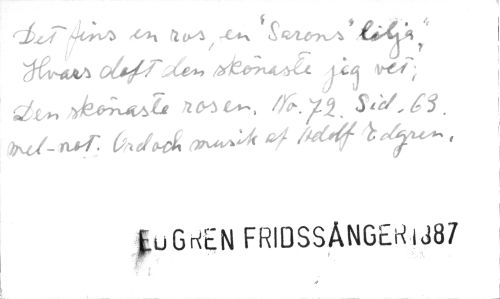 Det fins en ros, en "Sarons" lilja",
Hvars doft den skönaste jag vet;
Den skönaste rosen. No. 72. Sid. 63.
mel-not. Ord och musik af Adolf Edgren.
EDGREN FRIDSSÅNGER 1887